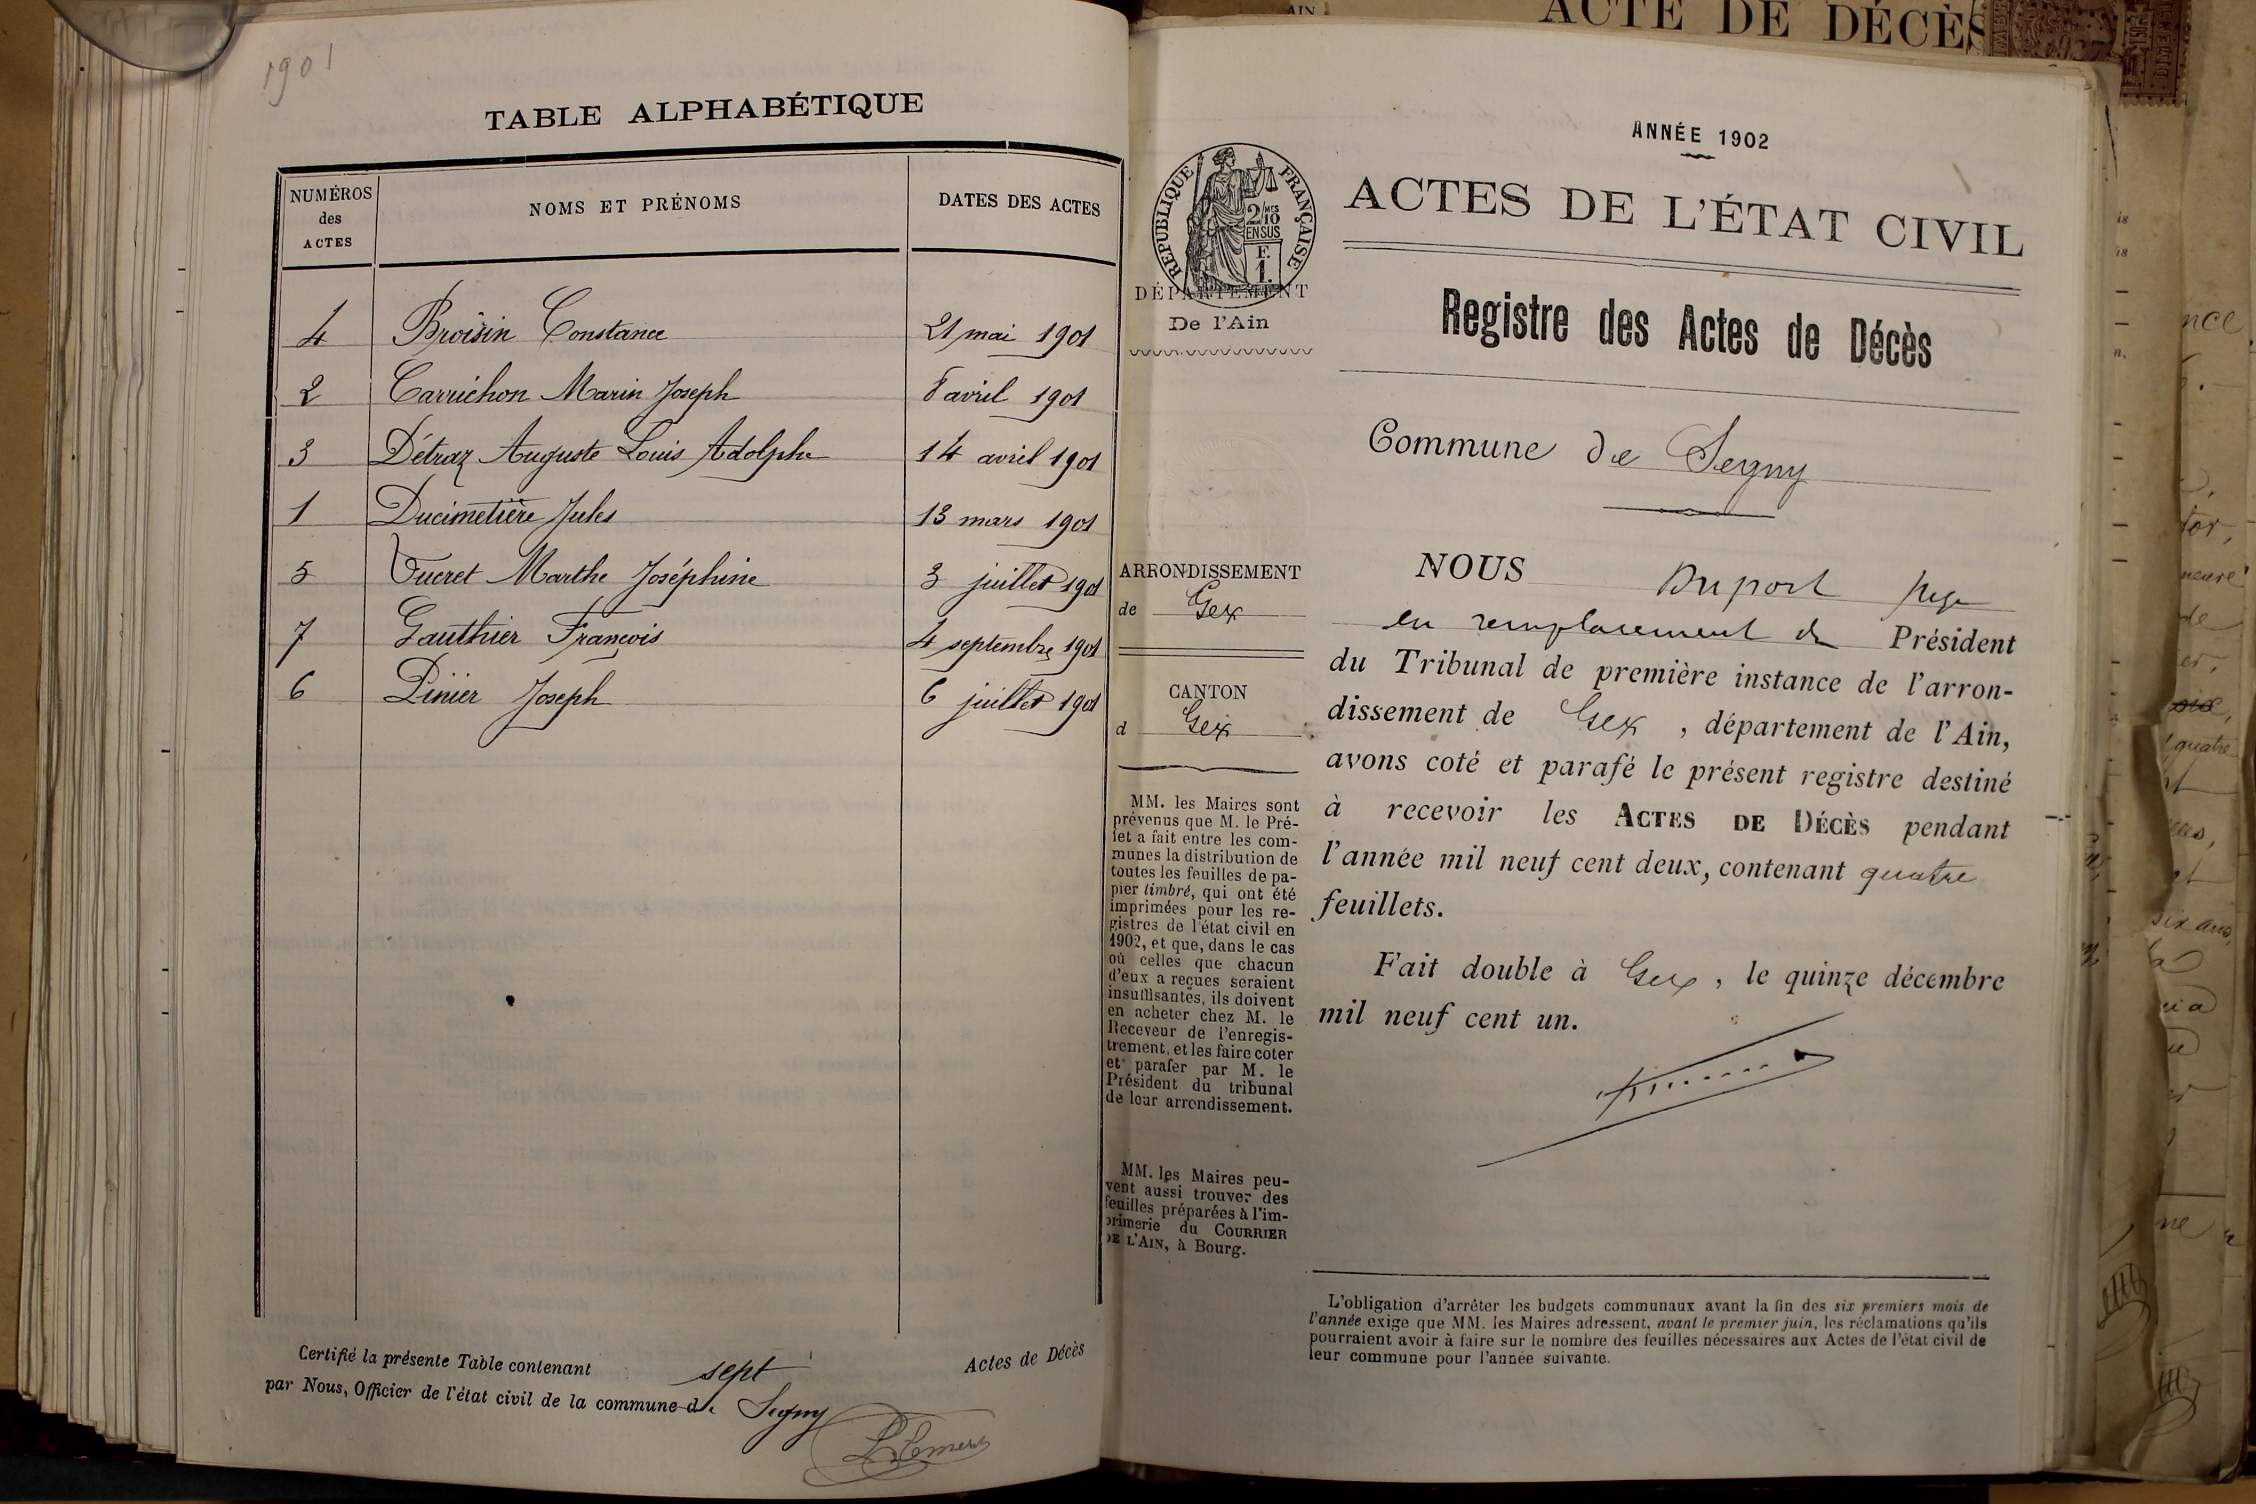 1901
TABLE ALPHABÉTIQUE
NUMÉROS
des
ACTES
NOMS ET PRÉNOMS
DATES DES ACTES
4 Broisin Constance 21 mai 1901
2 Carrichon Marin Joseph 8 avril 1901
3 Détraz Auguste Louis Adolphe 14 avril 1901
1 Ducimetière Jules 13 mars 1901
5 Fucret Marthe Joséphine 3 juillet 1901
7 Gauthier François 4 septembre 1901
6 Pinier Joseph 6 juillet 1901
Certifié la présente Table contenant sept Actes de Décès
par Nous, Officier de l'état civil de la commune de Segny
ACTE DE DÉCÈS
ANNÉE 1902
RÉPUBLIQUE FRANÇAISE
2/10
EN SUS
F.
1.
DÉPARTEMENT
De l'Ain
ARRONDISSEMENT
de Gex
CANTON
d Gex
MM. les Maires sont
prévenus que M. le Pré-
fet a fait entre les com-
munes la distribution de
toutes les feuilles de pa-
pier timbré, qui ont été
imprimées pour les re-
gistres de l'état civil en
1902, et que, dans le cas
où celles que chacun
d'eux a reçues seraient
insuffisantes, ils doivent
en acheter chez M. le
Receveur de l'enregis-
trement, et les faire coter
et parafer par M. le
Président du tribunal
de leur arrondissement.
MM. les Maires peu-
vent aussi trouver des
feuilles préparées à l'im-
primerie du COURRIER
DE L'AIN, à Bourg.
ACTES DE L'ÉTAT CIVIL
Registre des Actes de Décès
Commune de Segny
NOUS Duport juge
en remplacement du Président
du Tribunal de première instance de l'arron-
dissement de Gex, département de l'Ain,
avons coté et parafé le présent registre destiné
à recevoir les ACTES DE DÉCÈS pendant
l'année mil neuf cent deux, contenant quatre
feuillets.
Fait double à Gex, le quinze décembre
mil neuf cent un.
L'obligation d'arrêter les budgets communaux avant la fin des six premiers mois de
l'année exige que MM. les Maires adressent, avant le premier juin, les réclamations qu'ils
pourraient avoir à faire sur le nombre des feuilles nécessaires aux Actes de l'état civil de
leur commune pour l'année suivante.